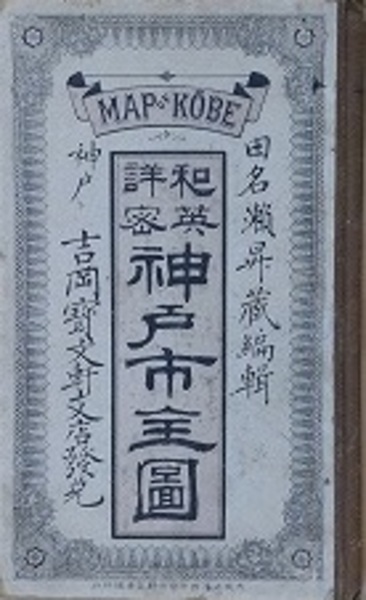 MAP OF KŌBE
田名瀬昇蔵編輯
和英
詳密
神戸市全圖
神戸
吉岡寶文軒支店發兌